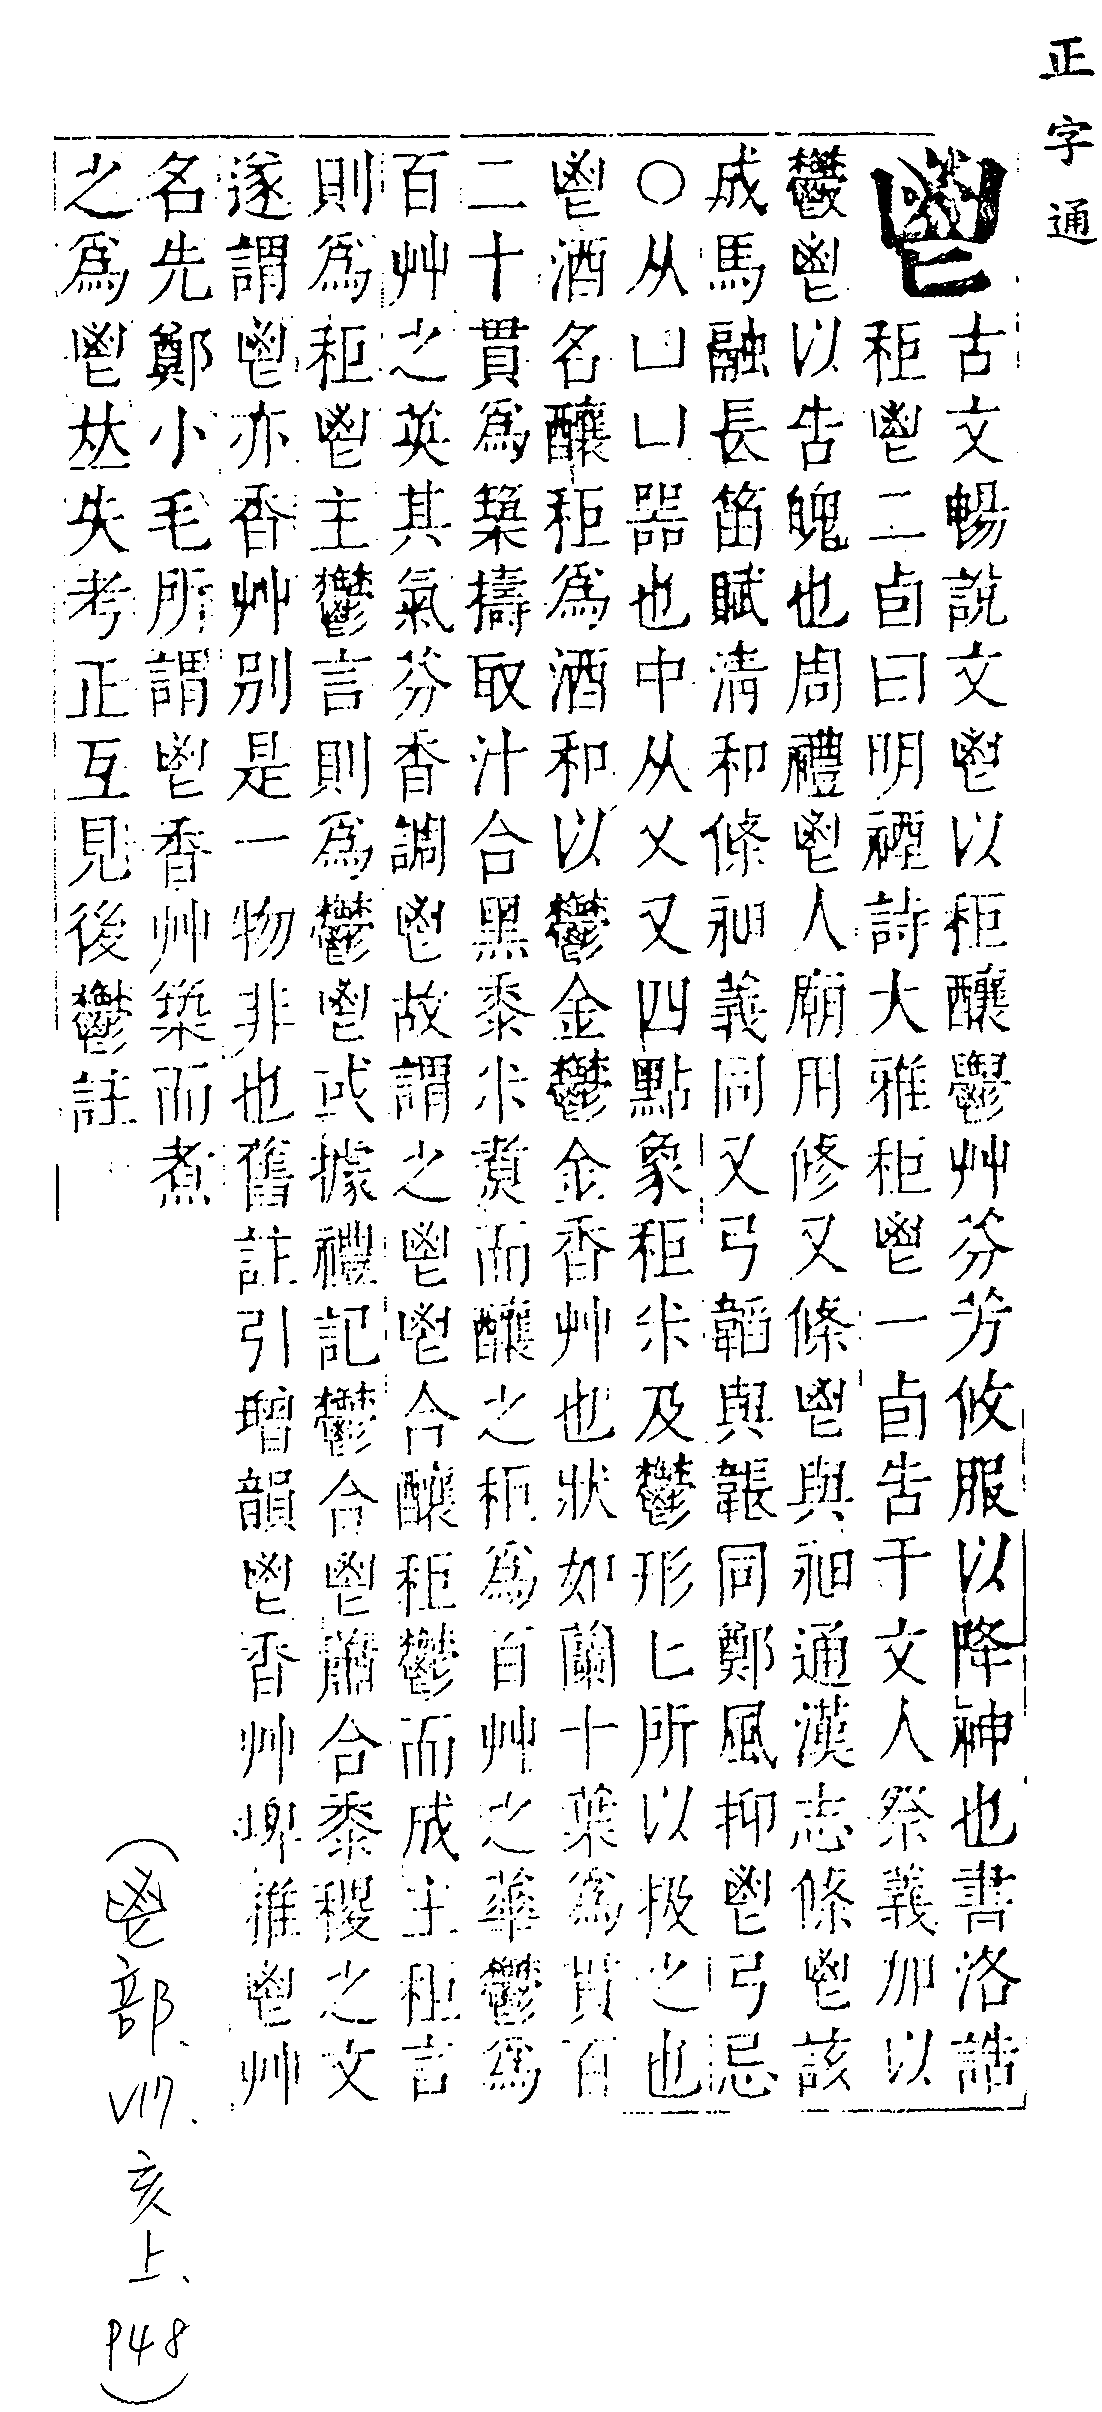 正字通
鬯
古文暢說文鬯以秬釀鬱艸芬芳攸服以降神也書洛誥
秬鬯二卣曰明禋詩大雅秬鬯一卣告于文人祭義加以
鬱鬯以告魄也周禮鬯人廟用修又條鬯與𥛚通漢志條鬯該
成馬融長笛賦清和條昶義同又弓韔與韔同鄭風抑鬯弓忌
○从凵凵器也中从乂又四點象秬米及鬱形匕所以扱之也
鬯酒名釀秬為酒和以鬱金鬱金香艸也狀如蘭十葉為貫百
二十貫為築擣取汁合黑黍米煑而釀之秬為百艸之華鬱為
百艸之英其氣芬香調鬯故謂之鬯鬯合釀秬鬱而成主秬言
則為秬鬯主鬱言則為鬱鬯或據禮記鬱合鬯蕭合黍稷之文
遂謂鬯亦香艸別是一物非也舊註引增韻鬯香艸埤雅鬯艸
名先鄭小毛所謂鬯香艸築而煮
之為鬯𠀤失考正互見後鬱註
(鬯部、VIII、亥上、P48)